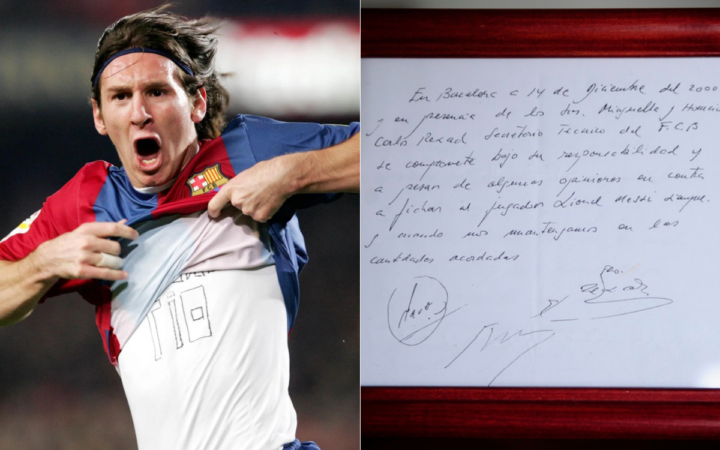 TIO
En Barcelona a 14 de Diciembre del 2000
y en presencia de los Srs. Minguella y Horacio
Carlos Rexach Secretario Técnico del F.C.B
se compromete bajo su responsabilidad y
a pesar de algunas opiniones en contra
a fichar al jugador Lionel Messi siempre
y cuando nos mantengamos en las
cantidades acordadas